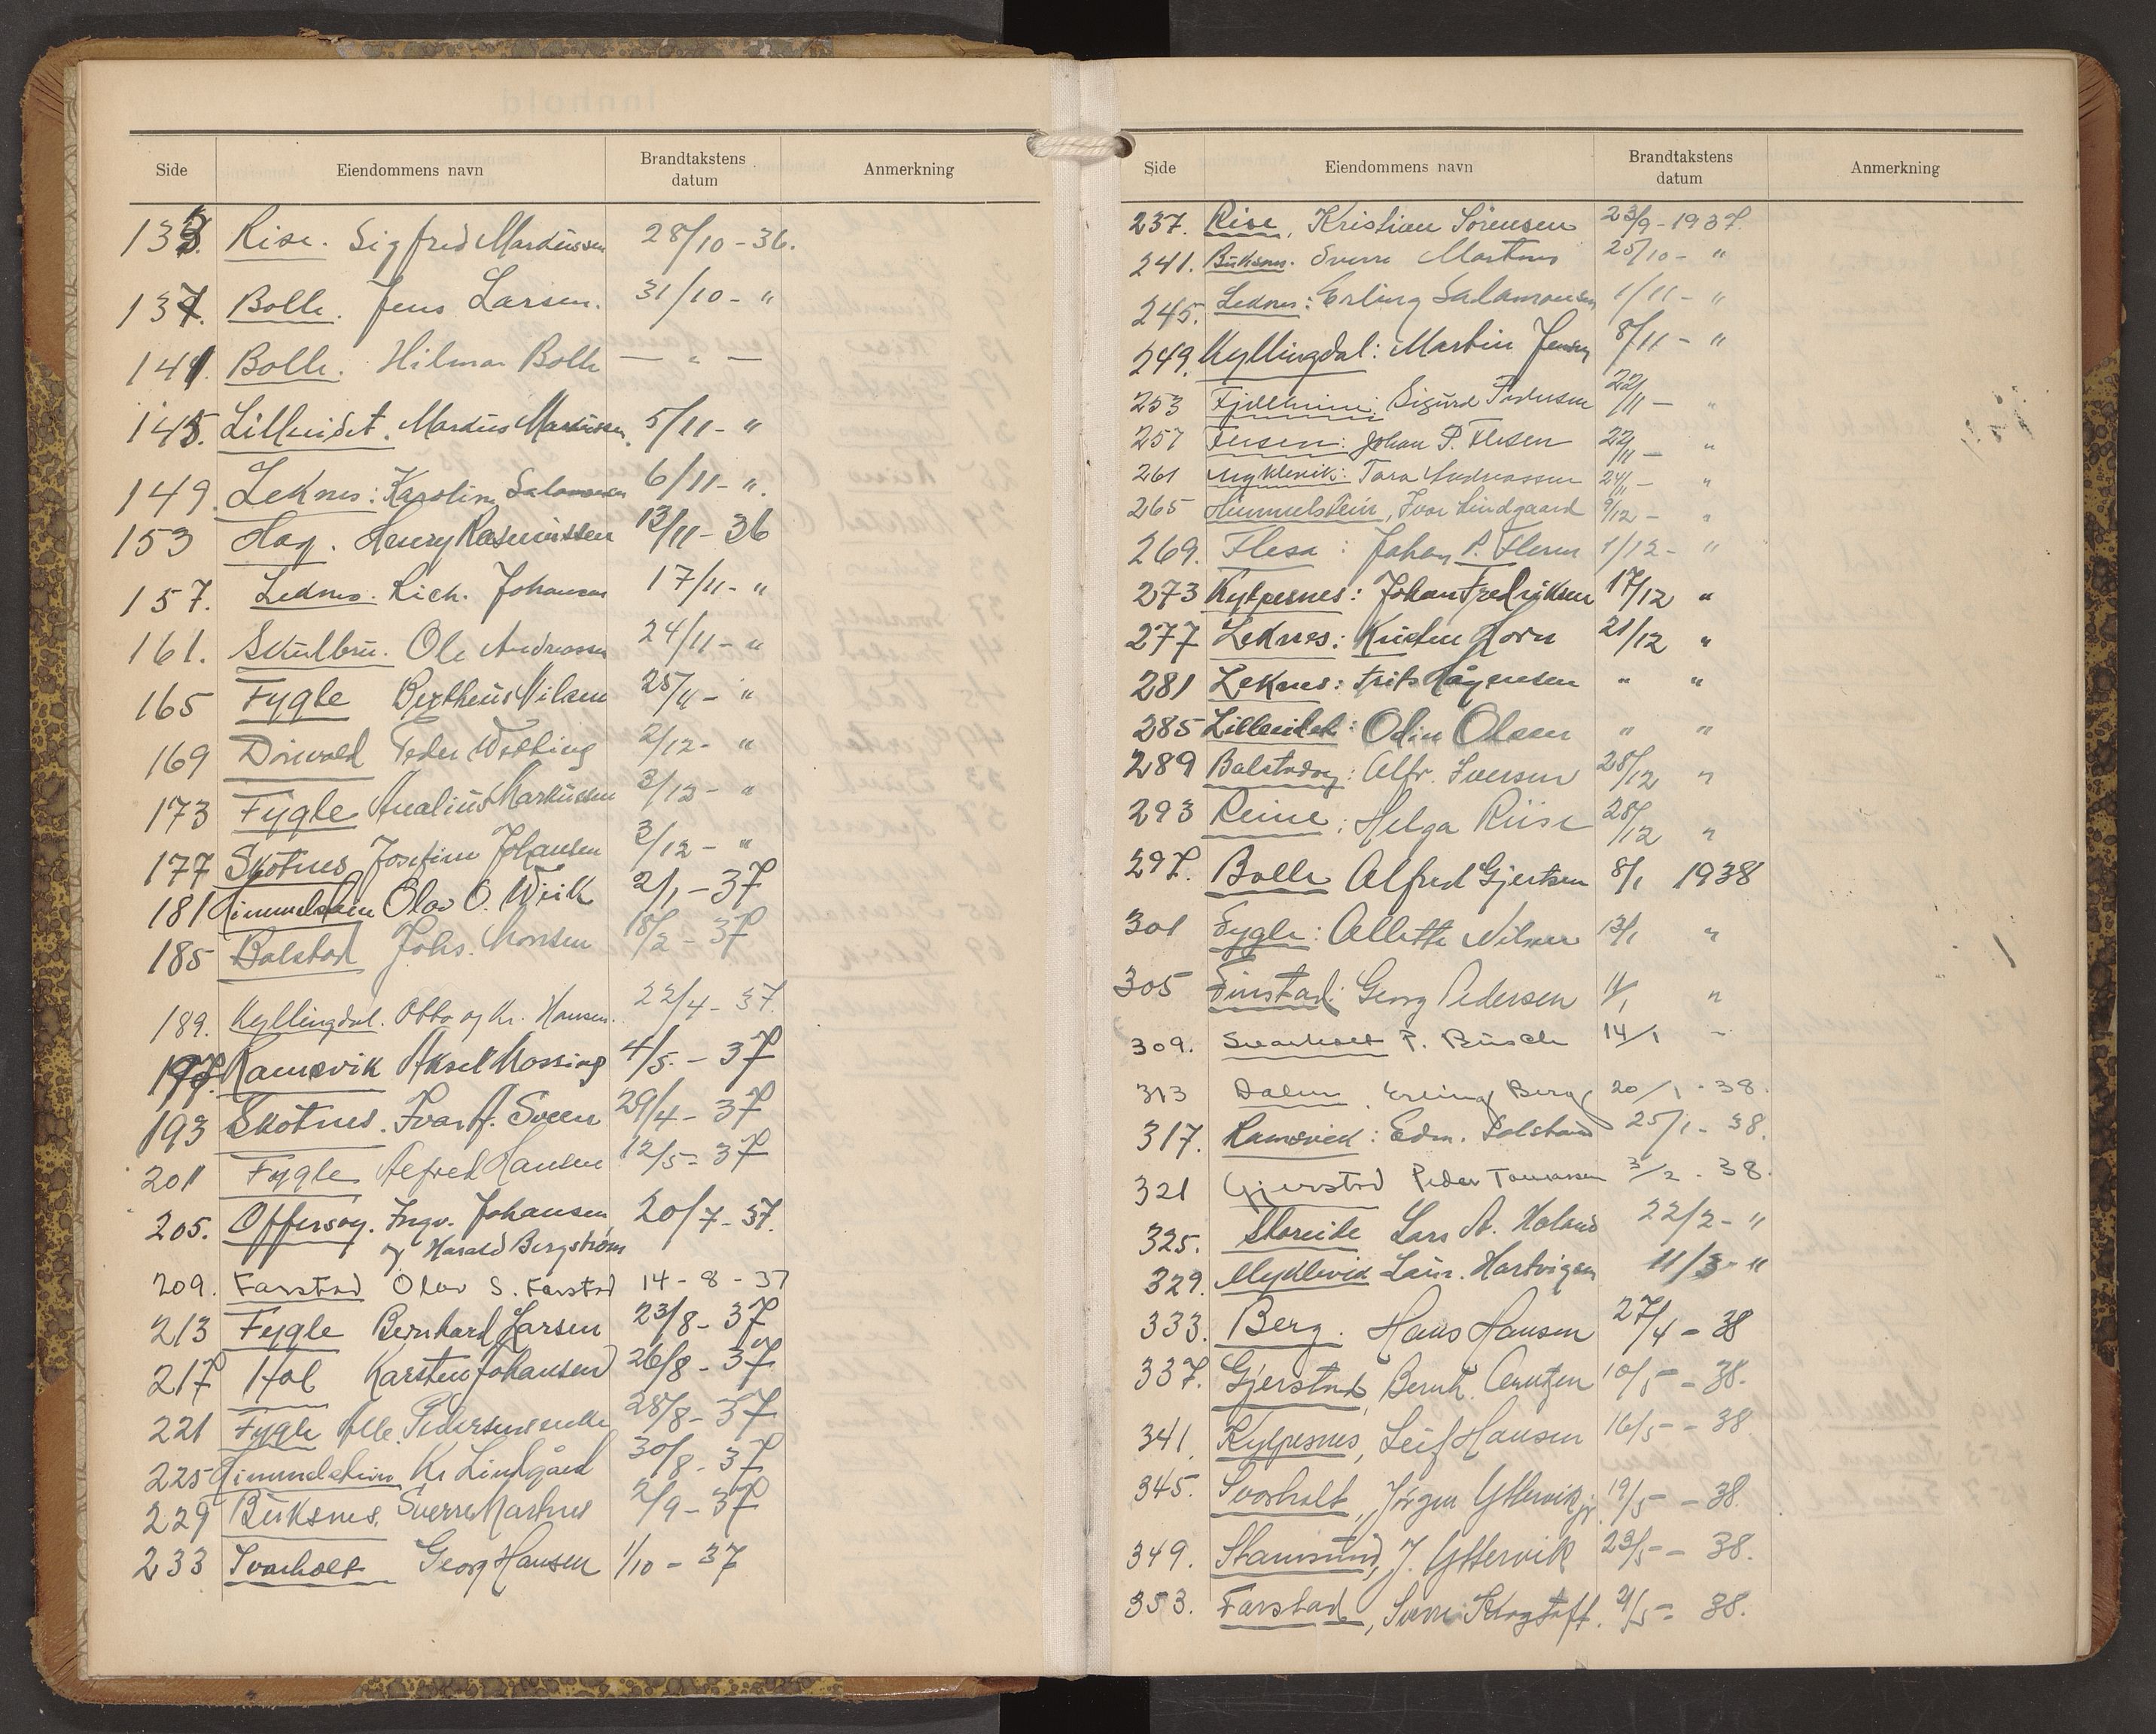 Side Eiendommens navn Brandtakstens datum Anmerkning
133. Rise. Sigfred Markussen 28/10-36.
137. Bolle. Jens Larsen. 31/10- "
141. Bolle. Hilmar Bolle — " —
145. Lilleeidet. Markus Markussen. 5/11- "
149. Leknes: Karoline Salomonsen 6/11- ".
153 Hag. Henry Rasmussen 13/11-36
157. Leknes. Rich. Johansen 17/11- "
161. Skulbru. Ole Andreassen 24/11- "
165 Fygle Bertheus Nilsen 25/11- "
169 Peder 2/12- "
173 Fygle Analius Markussen 3/12- "
177 Skotnes Josefine Johansen 3/12- "
181 Himmelstein Olav O. Wiik 2/1-37
185 Balstad Johs. Monsen 18/2-37
189. Kyllingdal. Otto og Kr. Hansen. 22/4-37.
197. Ramsvik Aksel Mossing 4/5.-37
193 Skotnes. Ivar A. Sveen 29/4-37
201 Fygle Alfred Hansen 12/5-37
205. Offersøy. Ingv. Johansen 20/7-37.
og Harald Bergström
209. Farstad Olav S. Farstad 14-8-37
213 Fygle Bernhard Larsen 23/8-37
217 Hol Karsten Johansen 26/8-37
221 Fygle Alle. Pedersens enke 28/8-37
225 Himmelstein Kr Lindgård 30/8-37
229 Buksnes. Sverre Martnes 2/9-37
233 Svarholt Georg Hansen 1/10-37
Side Eiendommens navn Brandtakstens datum Anmerkning
237. Rise, Kristian Sörensen 23/9-1937.
241. Buksnes. Sverre Martnes 25/10- "
245. Leknes: Erling Salamonsen 1/11- "
249. Kyllingdal: Martin Jensen 8/11- "
253 Fjellheim: Sigurd Pedersen 22/11- "
257 Flesen: Johan P. Flesen 22/11- "
261 Myklevik: Tora Andreassen 24/11- "
265 Himmelstein, Ivar Lindgaard 9/12- "
269. Flesa: Johan P. Flesen 1/12- "
273 Kylpesnes: Johan Fredriksen 17/12 "
277 Leknes: Kristen Horn 21/12 "
281 Leknes: Frits Hågensen " "
285 Lilleeidet: Odin Olsen " "
289 Balstadøy: Alfr. Iversen 28/12 "
293 Reine: Helga Riise 28/12 "
297. Bolle Alfred Gjertsen 8/1 1938
301 Fygle: Allette Nilsen 13/1 "
305 Finstad: Georg Pedersen 11/1 "
309. Svarholt P. Busch 14/1 "
313 Dalen, Erling Berg 20/1-38.
317. Ramsvik: Edm. Solstad 25/1-38.
321 Gjerstad Peder Tomassen 3/2-38.
325. Storeide Lars A. Holand 22/2- "
329. Myklevik Laur. Hartvigsen 11/3- "
333. Berg. Hans Hansen 27/4-38
337. Gjerstad, Bernh. Arntzen 10/5-38.
341. Kylpesnes, Leif Hansen 16/5-38.
345. Svarholt, Jörgen Yttervik jr. 19/5-38.
349. Stamsund, J. Yttervik 23/5-38.
353. Farstad, Sverre 21/5-38.